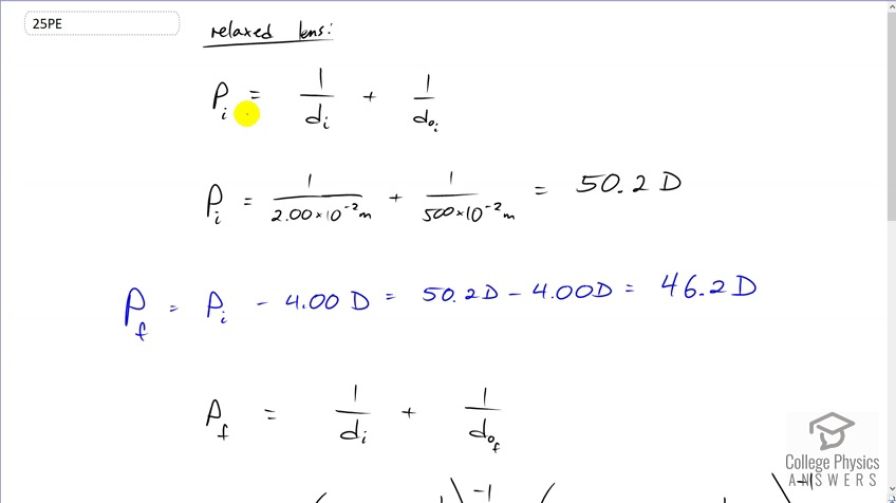 25PE
relaxed lens:
P_i = 1/d_i + 1/d_{o_i}
P_i = 1/(2.00×10^-2 m) + 1/(500×10^-2 m) = 50.2 D
P_f = P_i - 4.00 D = 50.2 D - 4.00 D = 46.2 D
P_f = 1/d_i + 1/d_{o_f}
College Physics
ANSWERS